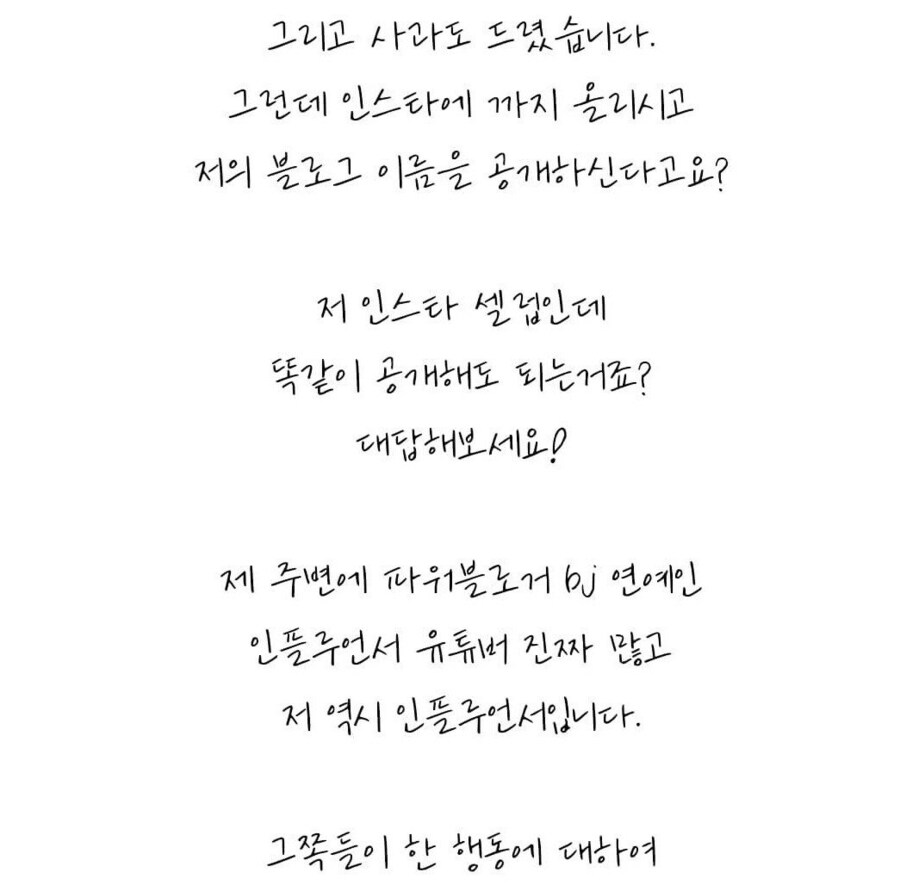 그리고 사과도 드렸습니다.
그런데 인스타에 까지 올리시고
저의 블로그 이름을 공개하신다고요?
저 인스타 셀럽인데
똑같이 공개해도 되는거죠?
대답해보세요!
제 주변에 파워블로거 bj 연예인
인플루언서 유튜버 진짜 많고
저 역시 인플루언서입니다.
그쪽들이 한 행동에 대하여